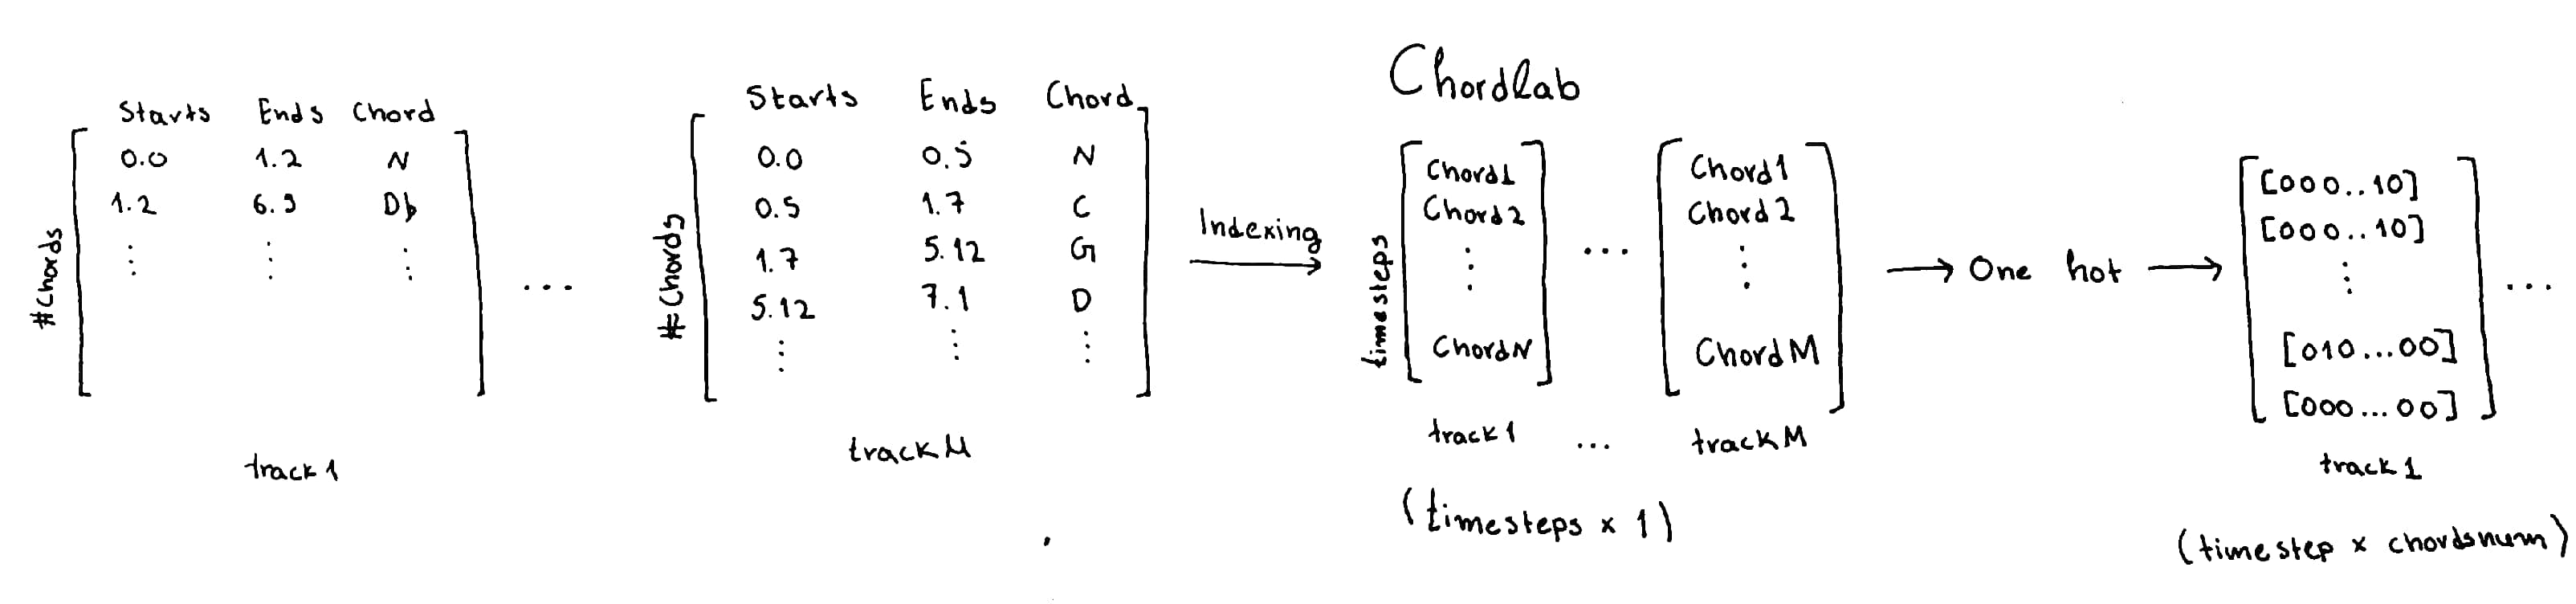 Chordlab
Starts Ends Chord
0.0 1.2 N
1.2 6.9 Db
⋮ ⋮ ⋮
#Chords
track 1
...
Starts Ends Chord
0.0 0.5 N
0.5 1.7 C
1.7 5.12 G
5.12 7.1 D
⋮ ⋮ ⋮
#Chords
track M
Indexing
timesteps
Chord1
Chord2
⋮
ChordN
track 1
...
Chord1
Chord2
⋮
ChordM
...
track M
(timesteps x 1)
→ One hot →
[000..10]
[000..10]
⋮
[010...00]
[000...00]
...
track 1
(timestep x chordsnum)